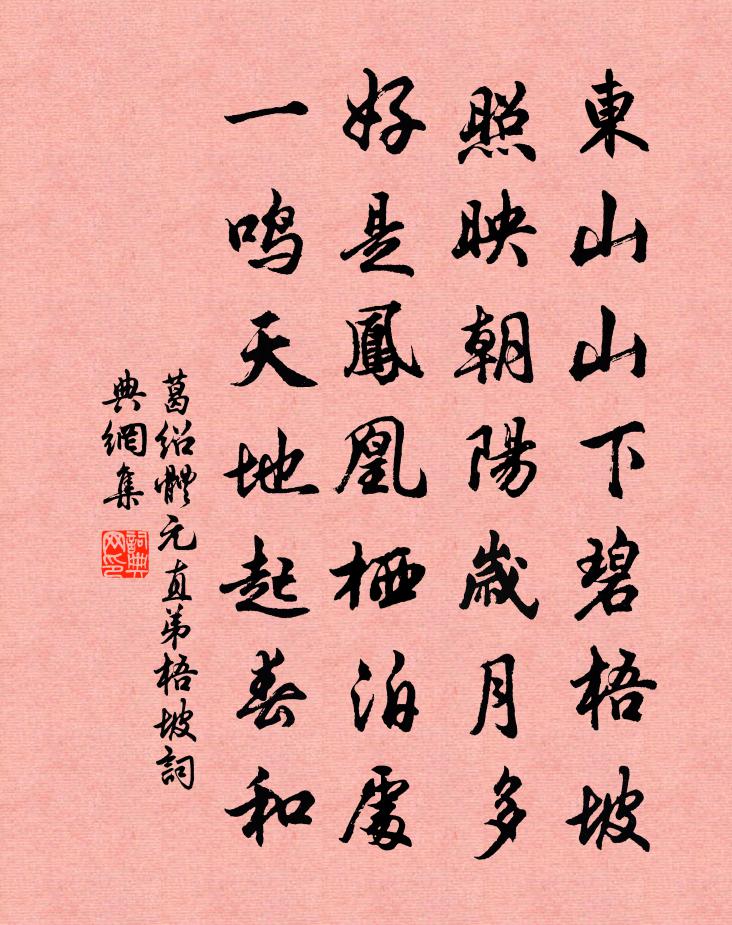 東山山下碧梧坡
照映朝陽歲月多
好是鳳凰栖泊處
一鸣天地起春和
葛绍體元直弟梧坡詞
典網集
詞典
网印